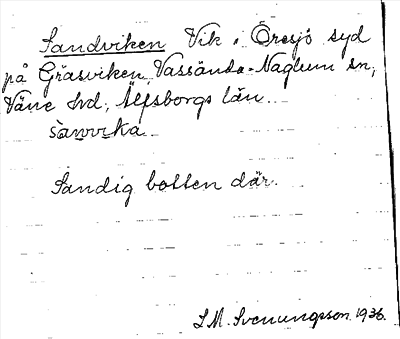 Sandviken Vik i Öresjö syd
på Gräsviken, Vassända-Naglum sn,
Väne hd, Älfsborgs län.
sanvika
Sandig botten där.
S.M. Svenungsson 1936.